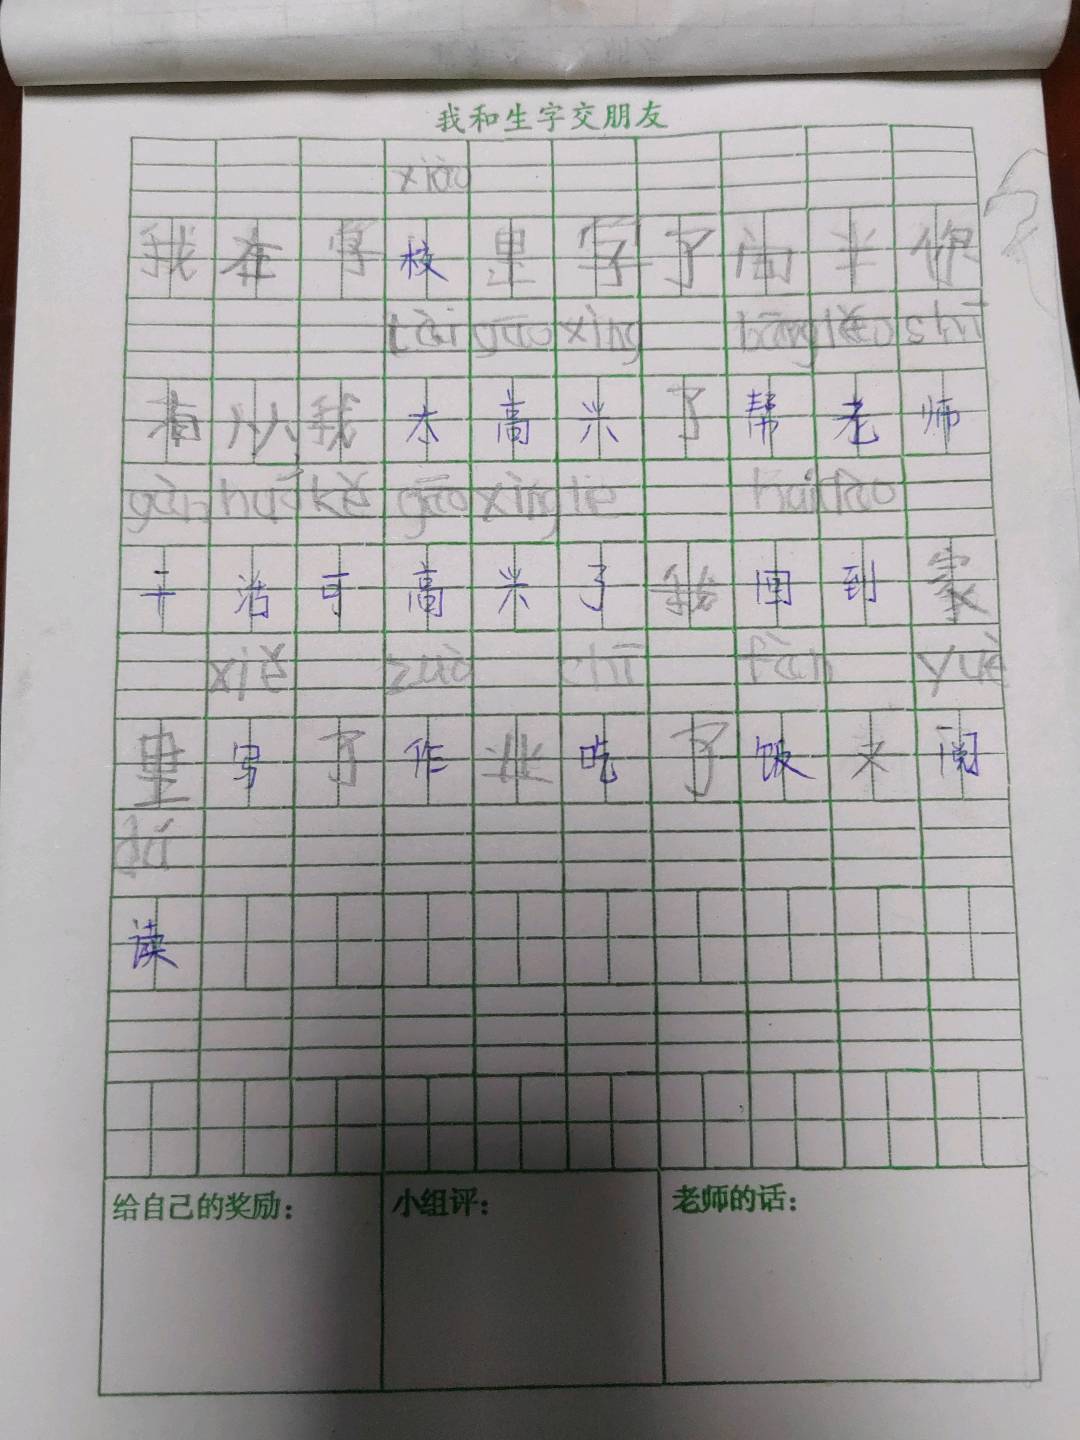 我和生字交朋友
xiào
我在学校里写了两半你
有从我太高兴了帮老师
gàn huó kě gāo xìng le huí dào
干活可高兴了我回到家
xiě zuò chī fàn yuè
里写了作业吃了饭又阅
dú
读
给自己的奖励： 小组评： 老师的话：